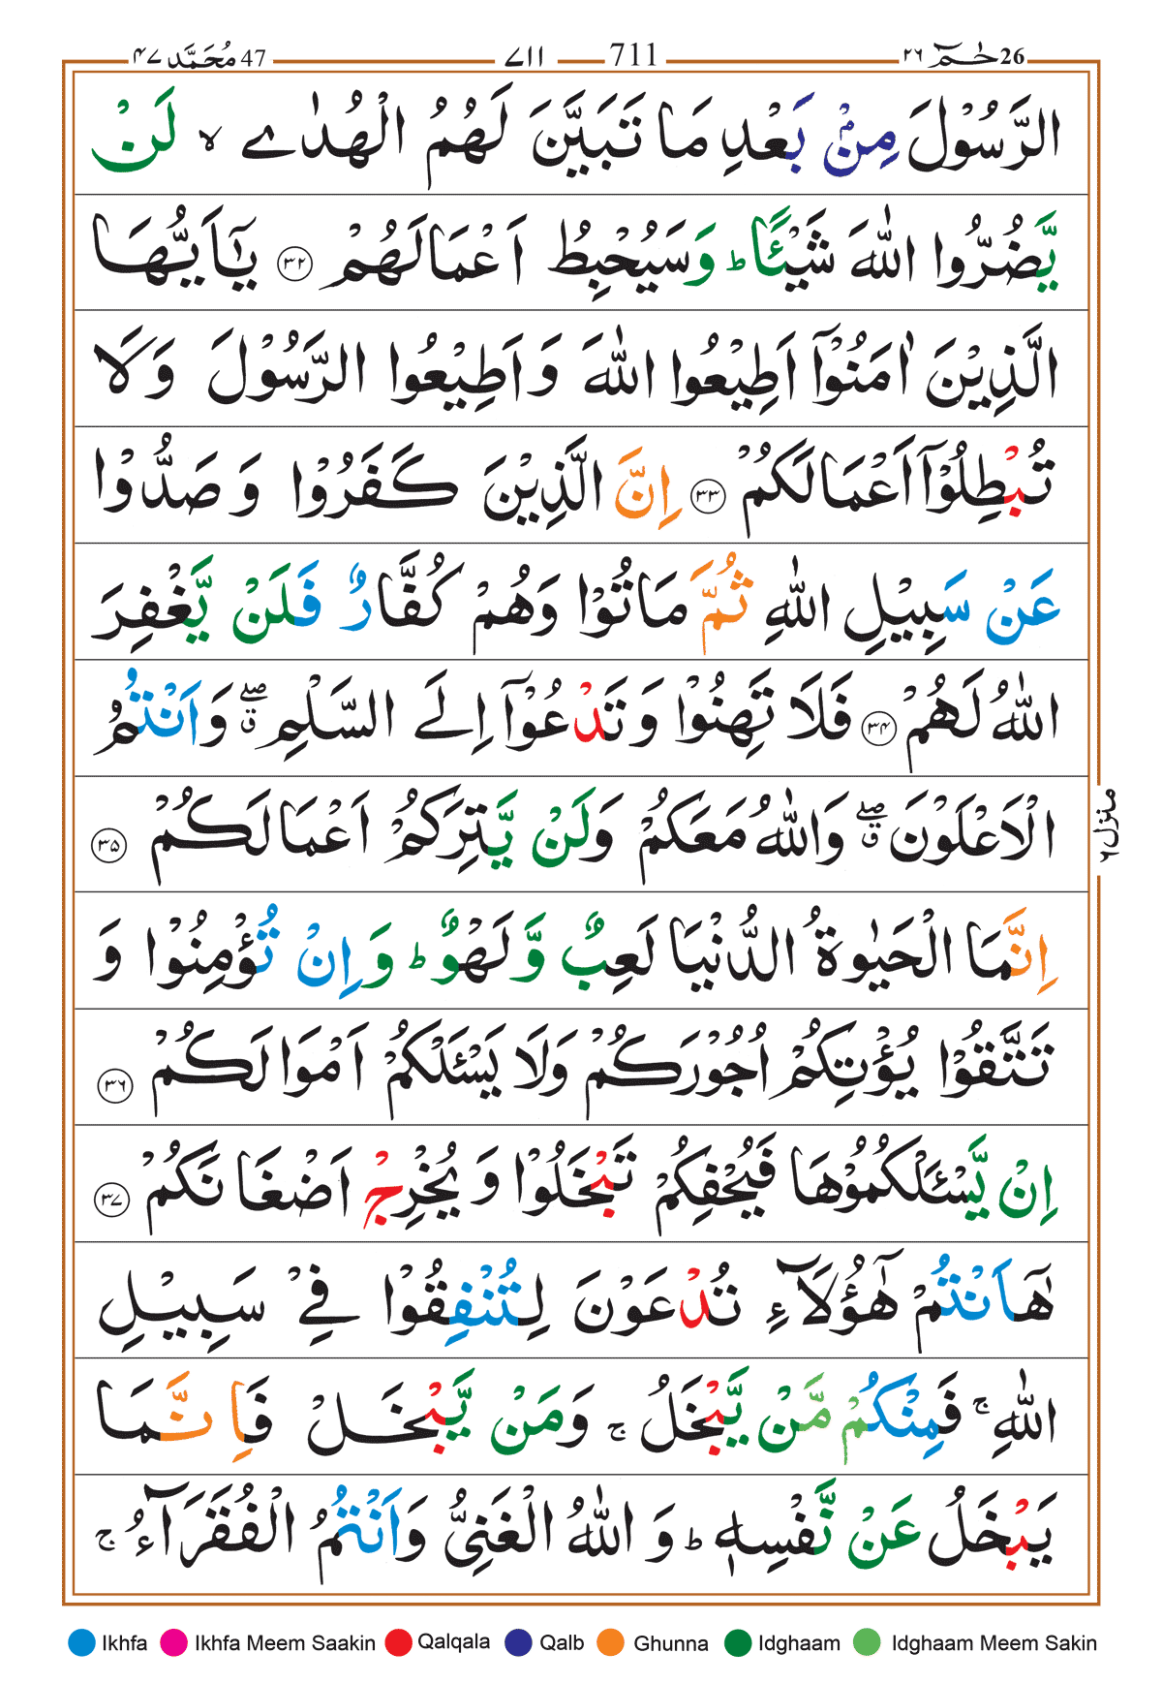 محمد ٤٧ 47 ٧١١ 711 حٰمٓ ٢٦ 26
الرَّسُوْلَ مِنْۢ بَعْدِ مَا تَبَيَّنَ لَهُمُ الْهُدٰى ۙ لَنْ
يَّضُرُّوا اللّٰهَ شَيْـًٔا ؕ وَسَيُحْبِطُ اَعْمَالَهُمْ ﴿۳۲﴾ يٰۤاَيُّهَا
الَّذِيْنَ اٰمَنُوْۤا اَطِيْعُوا اللّٰهَ وَاَطِيْعُوا الرَّسُوْلَ وَلَا
تُبْطِلُوْۤا اَعْمَالَكُمْ ﴿۳۳﴾ اِنَّ الَّذِيْنَ كَفَرُوْا وَصَدُّوْا
عَنْ سَبِيْلِ اللّٰهِ ثُمَّ مَاتُوْا وَهُمْ كُفَّارٌ فَلَنْ يَّغْفِرَ
اللّٰهُ لَهُمْ ﴿۳۴﴾ فَلَا تَهِنُوْا وَتَدْعُوْۤا اِلَى السَّلْمِ ۖۗ وَاَنْتُمُ
الْاَعْلَوْنَ ۖۗ وَاللّٰهُ مَعَكُمْ وَلَنْ يَّتِرَكُمْ اَعْمَالَكُمْ ﴿۳۵﴾
اِنَّمَا الْحَيٰوةُ الدُّنْيَا لَعِبٌ وَّلَهْوٌ ؕ وَاِنْ تُؤْمِنُوْا وَ
تَتَّقُوْا يُؤْتِكُمْ اُجُوْرَكُمْ وَلَا يَسْـَٔلْكُمْ اَمْوَالَكُمْ ﴿۳۶﴾
اِنْ يَّسْـَٔلْكُمُوْهَا فَيُحْفِكُمْ تَبْخَلُوْا وَيُخْرِجْ اَضْغَانَكُمْ ﴿۳۷﴾
هٰۤاَنْتُمْ هٰۤؤُلَآءِ تُدْعَوْنَ لِتُنْفِقُوْا فِيْ سَبِيْلِ
اللّٰهِ ۚ فَمِنْكُمْ مَّنْ يَّبْخَلُ ۚ وَمَنْ يَّبْخَلْ فَاِنَّمَا
يَبْخَلُ عَنْ نَّفْسِهٖ ؕ وَاللّٰهُ الْغَنِيُّ وَاَنْتُمُ الْفُقَرَآءُ ۚ
منزل ٦
Ikhfa Ikhfa Meem Saakin Qalqala Qalb Ghunna Idghaam Idghaam Meem Sakin